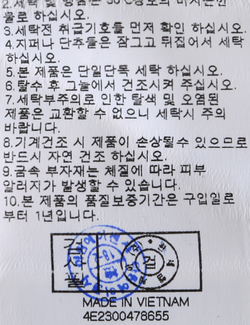 2.세탁 및 헹굼은 30℃정도의 미지근한
물로 하십시오.
3.세탁전 취급기호를 먼저 확인 하십시오.
4.지퍼나 단추들은 잠그고 뒤집어서 세탁
하십시오.
5.본 제품은 단일단독 세탁 하십시오.
6.탈수 후 그늘에서 건조시켜 주십시오.
7.세탁부주의로 인한 탈색 및 오염된
제품은 교환할 수 없으니 세탁시 주의
바랍니다.
8.기계건조 시 제품이 손상될수 있으므로
반드시 자연 건조 하십시오.
9.금속 부자재는 체질에 따라 피부
알러지가 발생할 수 있습니다.
10.본 제품의 품질보증기간은 구입일로
부터 1년입니다.
검
MADE IN VIETNAM
4E2300478655